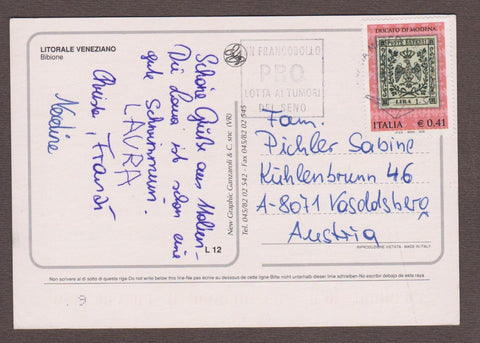 LITORALE VENEZIANO
Bibione
Schöne Grüße aus Italien.
Die Laura ist schon eine
gute Schwimmerin.
LAURA
Nadine
New Graphic Ganzaroli & C. snc (VR)
Tel. 045/82 02 542 - Fax 045/82 02 545
L 12
FRANCOBOLLO
PRO
LOTTA AI TUMORI
DEL SENO
DUCATO DI MODENA
POSTE ESTENSI
LIRA 1
ITALIA € 0,41
Fam.
Pichler Sabine
Kühlenbrunn 46
A-8071 Vasoldsberg
Austria
RIPRODUZIONE VIETATA - MADE IN ITALY
Non scrivere al di sotto di questa riga-Do not write below this line-Ne pas écrire au dessous de cette ligne-Bitte nicht unterhalb dieser linie schreiben-No escribir debajo de esta raya.